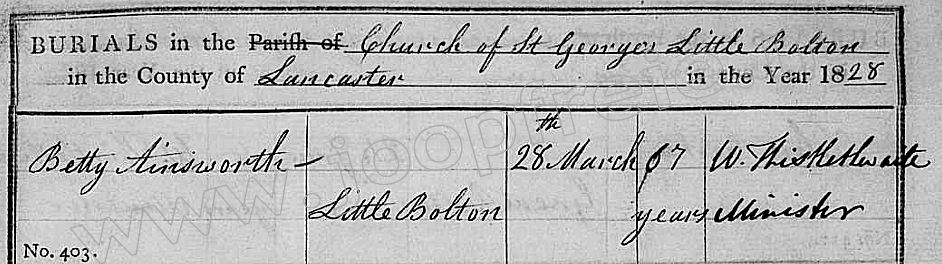 BURIALS in the Parish of Church of St Georges Little Bolton
in the County of Lancaster in the Year 1828
Betty Ainsworth 28th March 67 W. Thistlethwaite
Little Bolton years Minister
No. 403.